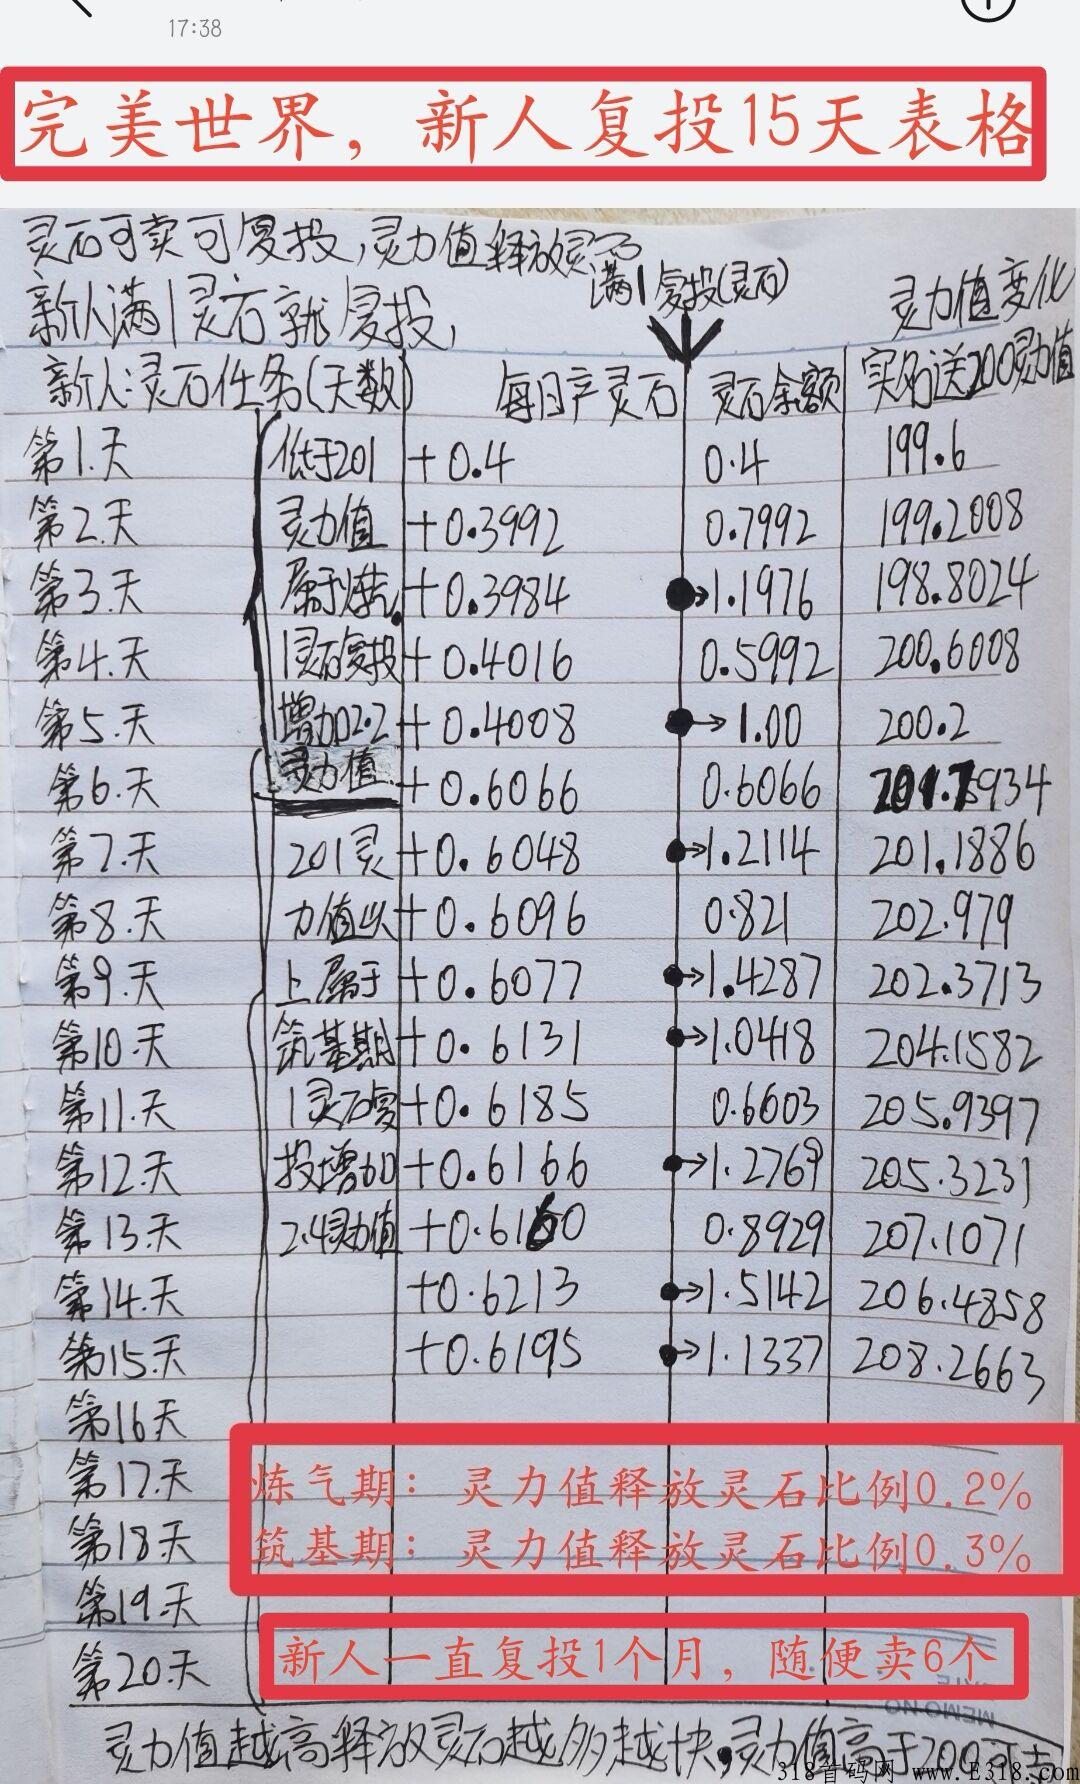 17:38
完美世界，新人复投15天表格
灵石可卖可复投,灵力值释放灵石
满1复投(灵石)
新人满1灵石就复投,
灵力值变化
新人:灵石任务(天数) 每日产灵石 灵石余额 实名送200灵力值
第1.天 低于201 +0.4 0.4 199.6
第2.天 灵力值 +0.3992 0.7992 199.2008
第3.天 属于炼气. +0.3984 1.1976 198.8024
第4.天 1灵石复投 +0.4016 0.5992 200.6008
第5.天 增加2.2 +0.4008 1.00 200.2
第6.天 灵力值. +0.6066 0.6066 201.7934
第7.天 201灵 +0.6048 1.2114 201.1886
第8.天 力值以 +0.6096 0.821 202.979
第9.天 上属于 +0.6077 1.4287 202.3713
第10.天 筑基期 +0.6131 1.0418 204.1582
第11.天 1灵石复 +0.6185 0.6603 205.9397
第12.天 投增加 +0.6166 1.2769 205.3231
第13.天 2.4灵力值 +0.6160 0.8929 207.1071
第14.天 +0.6213 1.5142 206.4858
第15.天 +0.6195 1.1337 208.2663
第16天
第17.天
炼气期：灵力值释放灵石比例0.2%
第18.天
筑基期：灵力值释放灵石比例0.3%
第19.天
第20.天
新人一直复投1个月，随便卖6个
MEMO NO
灵力值越高释放灵石越多越快.灵力值高于200可卖
318首码网 www.E318.com